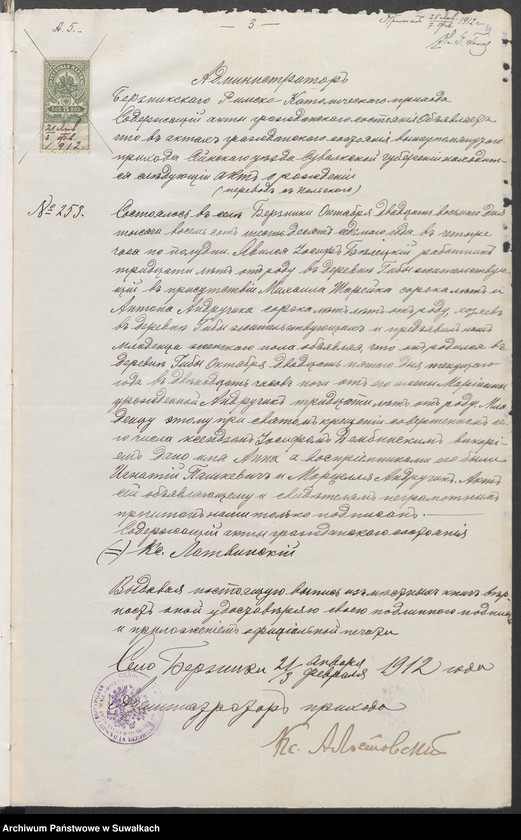 А. 5.
— 3 —
1912 г.
75 КОП.
1912.
Администраторъ
Бержникскаго Римско-Католическаго прихода
Содержащій акты гражданскаго состоянія объявляетъ
что въ актахъ гражданскаго состоянія вышеупомянутаго
прихода Сейнскаго уѣзда Сувалкской губерніи находит-
ся слѣдующій актъ о рожденіи
(переводъ съ польскаго)
№ 253.
Состоялось въ селѣ Бержники Октября двадцать восьмаго дня
тысяча восемьсотъ шестьдесятъ года въ четыре
часа по полудни. Явился Іосифъ Бѣлецкій работникъ
тридцати лѣтъ отъ роду въ деревнѣ Гибы жительствую-
щій въ присутствіи Михаила сорока лѣтъ и
Антона Андручика сорока лѣтъ отъ роду, хозяевъ
въ деревнѣ Гибы жительствующихъ и предъявилъ намъ
младенца женскаго пола объявляя, что онъ родился въ
деревнѣ Гибы Октября двадцать пятаго дня текущаго
года въ двѣнадцать часовъ ночи отъ его жены Маріанны
урожденной Андручикъ тридцати лѣтъ отъ роду. Мла-
денцу этому при святомъ крещеніи совершенномъ се-
го числа ксендзомъ Іосифомъ Домбинскимъ викарі-
емъ дано имя Анна а воспріемниками его были
Игнатій Пашкевичъ и Марцелла Андручикъ. Актъ
сей объявляющему и свидѣтелямъ неграмотнымъ
прочитанъ нами только подписанъ.
Содержащій акты гражданскаго состоянія
(—) Кс. Латвинскій
Выдавая настоящую выпись изъ мѣстныхъ книгъ вѣр-
ность оной удостовѣряю своею подлинною подписью
и приложеніемъ офиціальной печати
Село Бержники 21 января / 3 февраля 1912 года
Администраторъ прихода
Кс.
Archiwum Państwowe w Suwałkach